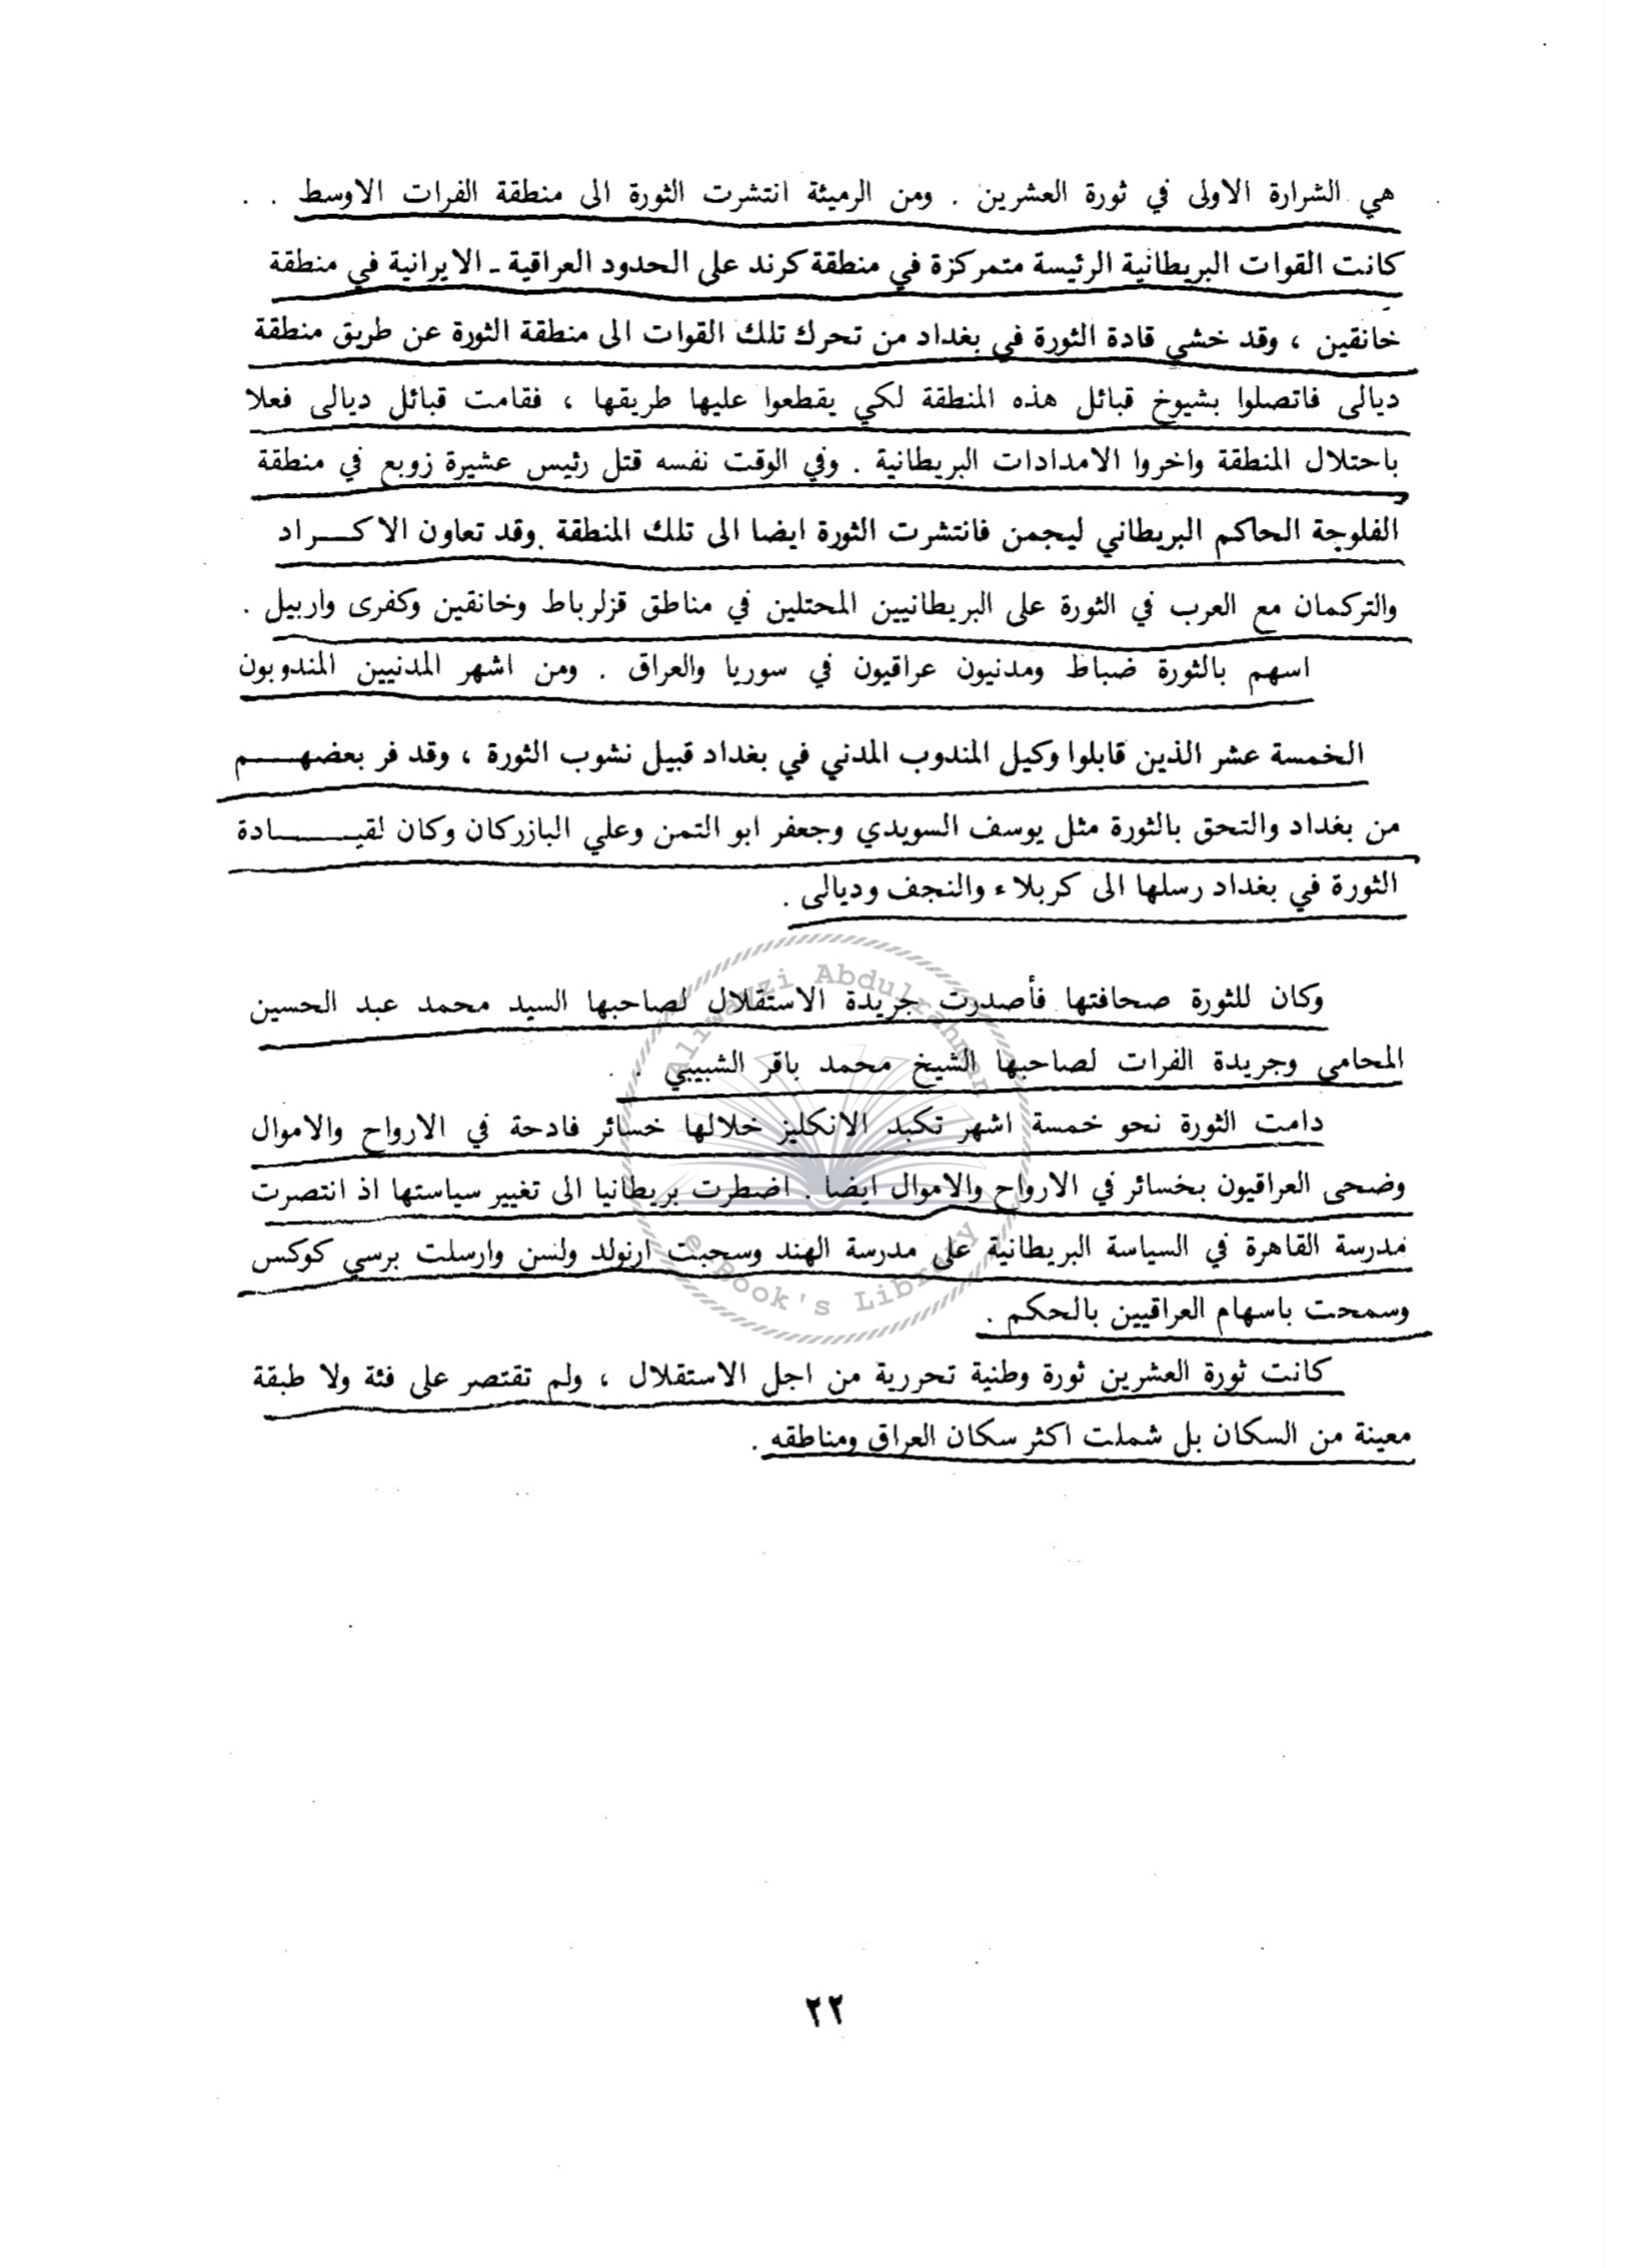 هي الشرارة الاولى في ثورة العشرين . ومن الرميثة انتشرت الثورة الى منطقة الفرات الاوسط . .
كانت القوات البريطانية الرئيسة متمركزة في منطقة كرند على الحدود العراقية - الايرانية في منطقة
خانقين ، وقد خشي قادة الثورة في بغداد من تحرك تلك القوات الى منطقة الثورة عن طريق منطقة
ديالى فاتصلوا بشيوخ قبائل هذه المنطقة لكي يقطعوا عليها طريقها ، فقامت قبائل ديالى فعلا
باحتلال المنطقة واخروا الامدادات البريطانية . وفي الوقت نفسه قتل رئيس عشيرة زوبع في منطقة
الفلوجة الحاكم البريطاني ليجمن فانتشرت الثورة ايضا الى تلك المنطقة . وقد تعاون الاكـــراد
والتركمان مع العرب في الثورة على البريطانيين المحتلين في مناطق قزلرباط وخانقين وكفرى واربيل .
اسهم بالثورة ضباط ومدنيون عراقيون في سوريا والعراق . ومن اشهر المدنيين المندوبون
الخمسة عشر الذين قابلوا وكيل المندوب المدني في بغداد قبيل نشوب الثورة ، وقد فر بعضهـــم
من بغداد والتحق بالثورة مثل يوسف السويدي وجعفر ابو التمن وعلي البازركان وكان لقيـــــادة
الثورة في بغداد رسلها الى كربلاء والنجف وديالى .
وكان للثورة صحافتها فأصدرت جريدة الاستقلال لصاحبها السيد محمد عبد الحسين
المحامي وجريدة الفرات لصاحبها الشيخ محمد باقر الشبيبي . .
دامت الثورة نحو خمسة اشهر تكبد الانكليز خلالها خسائر فادحة في الارواح والاموال
وضحى العراقيون بخسائر في الارواح والاموال ايضا . اضطرت بريطانيا الى تغيير سياستها اذ انتصرت
مدرسة القاهرة في السياسة البريطانية على مدرسة الهند وسحبت ارنولد ولسن وارسلت برسي كوكس
وسمحت باسهام العراقيين بالحكم .
كانت ثورة العشرين ثورة وطنية تحررية من اجل الاستقلال ، ولم تقتصر على فئة ولا طبقة
معينة من السكان بل شملت اكثر سكان العراق ومناطقه .
Abdulrahman
Book's Library
٢٢